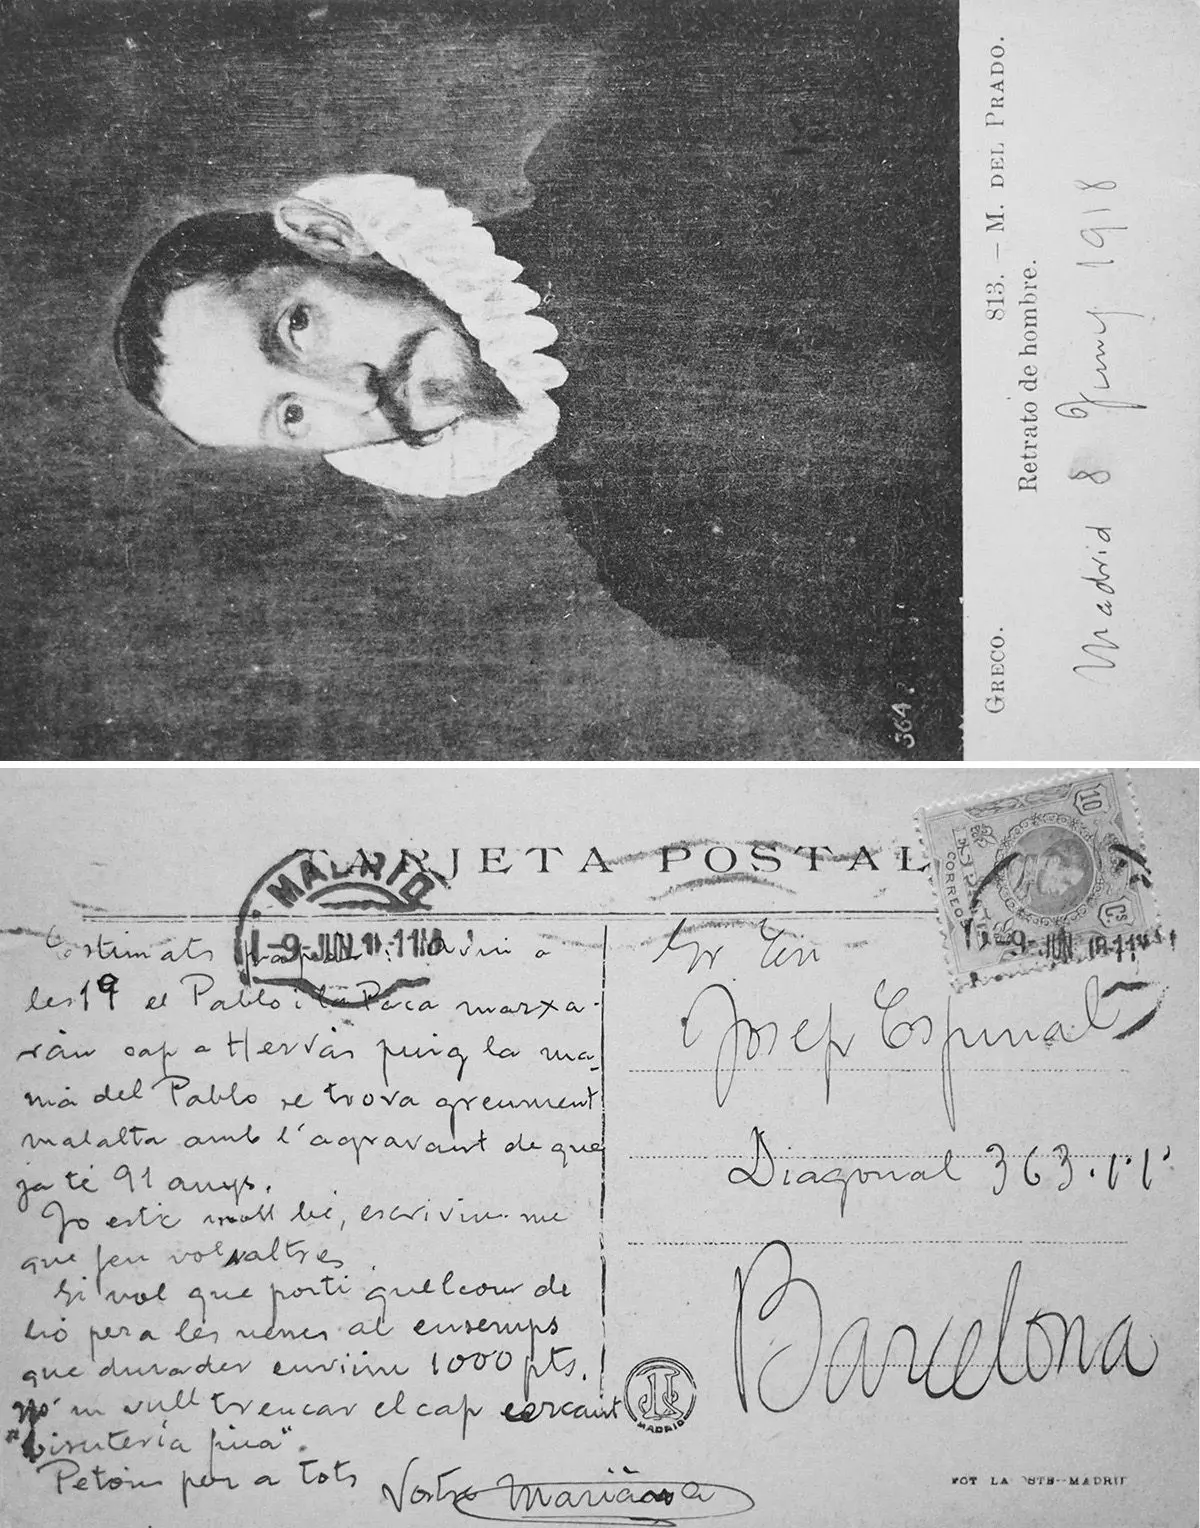 GRECO. 813. — M. DEL PRADO.
Retrato de hombre.
Madrid 8 Juny 1918
364
TARJETA POSTAL
MADRID
-9-JUN 18-11M
10
CTS
CORREOS
-9-JUN 18-11M
Estimats papas: Avui a
les 19 el Pablo i la Paca marxa-
rán cap a Hervás puig la ma-
má del Pablo se trova greument
malalta amb l'agravant de que
ja té 91 anys.
Jo estic molt bé, escriviu-me
que feu vosaltres
Si vol que porti quelcom de
bó pera les nenes al ensemps
que durader enviim 1000 pts.
no'm vull trencar el cap cercant
"bisuteria fina".
Petons per a tots
Vostre Mariana
Sr
Josep Espinal
Diagonal 363. 1. 1ª
Barcelona
MADRID
FOT LA
MADRID